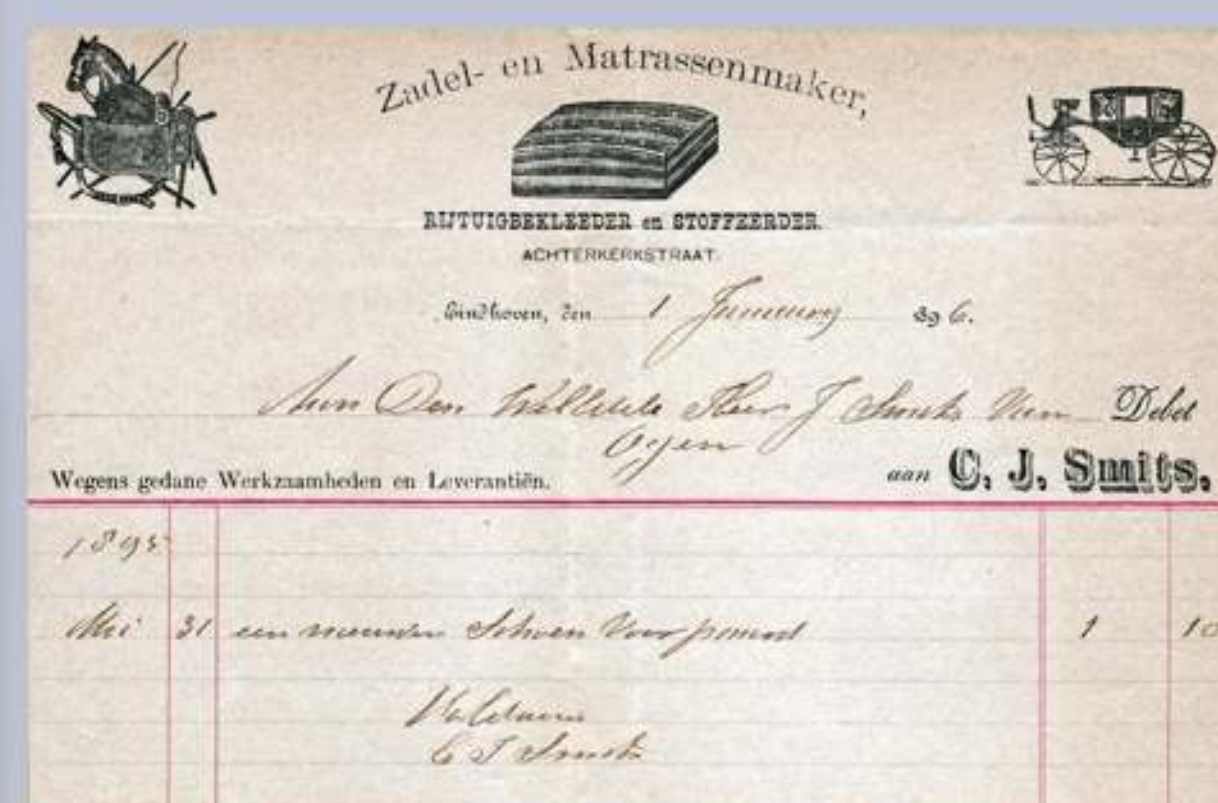 Zadel- en Matrassenmaker,
RIJTUIGBEKLEEDER en STOFFEERDER.
ACHTERKERKSTRAAT.
Eindhoven, den 1 Januarij 896.
Aan Den WelEdele Heer J Smits Van Debet
Oijen
Wegens gedane Werkzaamheden en Leverantiën. aan C. J. Smits.
1895
Mei 31 een nieuwen Schoen Voor 1 10
Voldaan
C J Smits